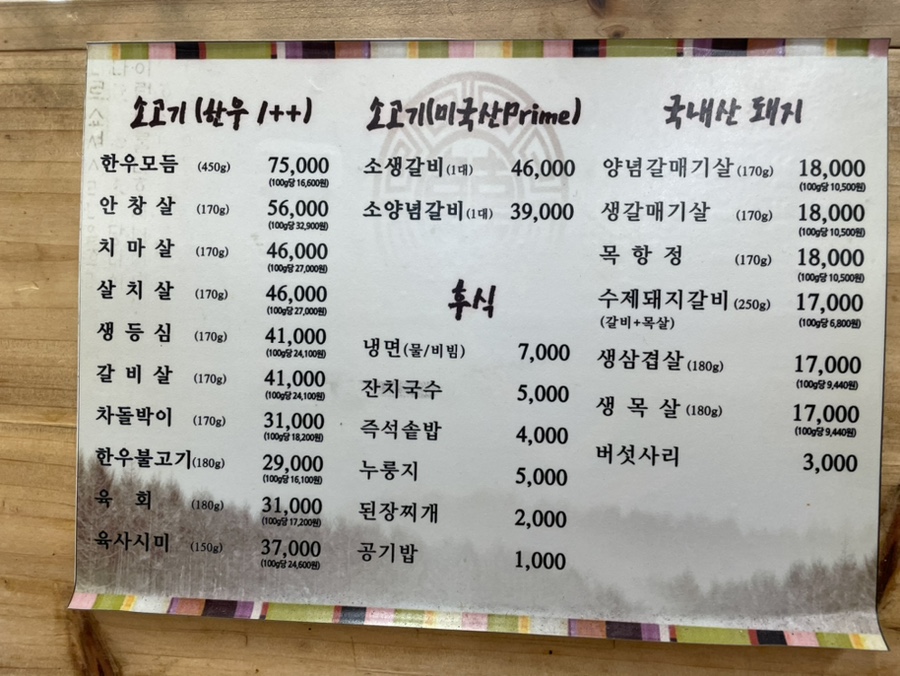 소고기 (한우 1++)
한우모듬 (450g) 75,000
(100g당 16,600원)
안창살 (170g) 56,000
(100g당 32,900원)
치마살 (170g) 46,000
(100g당 27,000원)
살치살 (170g) 46,000
(100g당 27,000원)
생등심 (170g) 41,000
(100g당 24,100원)
갈비살 (170g) 41,000
(100g당 24,100원)
차돌박이 (170g) 31,000
(100g당 18,200원)
한우불고기 (180g) 29,000
(100g당 16,100원)
육회 (180g) 31,000
(100g당 17,200원)
육사시미 (150g) 37,000
(100g당 24,600원)
소고기(미국산Prime)
소생갈비 (1대) 46,000
소양념갈비 (1대) 39,000
후식
냉면(물/비빔) 7,000
잔치국수 5,000
즉석솥밥 4,000
누룽지 5,000
된장찌개 2,000
공기밥 1,000
국내산 돼지
양념갈매기살 (170g) 18,000
(100g당 10,500원)
생갈매기살 (170g) 18,000
(100g당 10,500원)
목항정 (170g) 18,000
(100g당 10,500원)
수제돼지갈비 (250g) 17,000
(갈비+목살) (100g당 6,800원)
생삼겹살 (180g) 17,000
(100g당 9,440원)
생목살 (180g) 17,000
(100g당 9,440원)
버섯사리 3,000